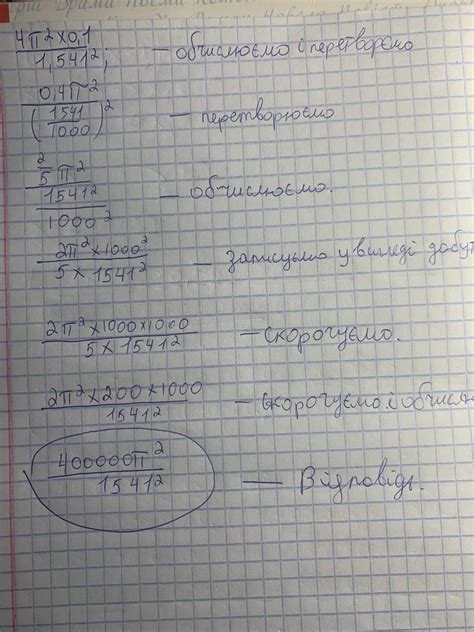 4π²×0,1
1,541² ; — обчислюємо і перетворємо
0,4π²
(1541/1000)² — перетворюємо
2/5 π²
1541²
1000² — обчислюємо.
2π²×1000²
5×1541² — Записуємо у вигляді добут
2π²×1000×1000
5×1541² — скорочуємо.
2π²×200×1000
1541² — скорочуємо і обчисл
400000π²
1541² — Відповідь.